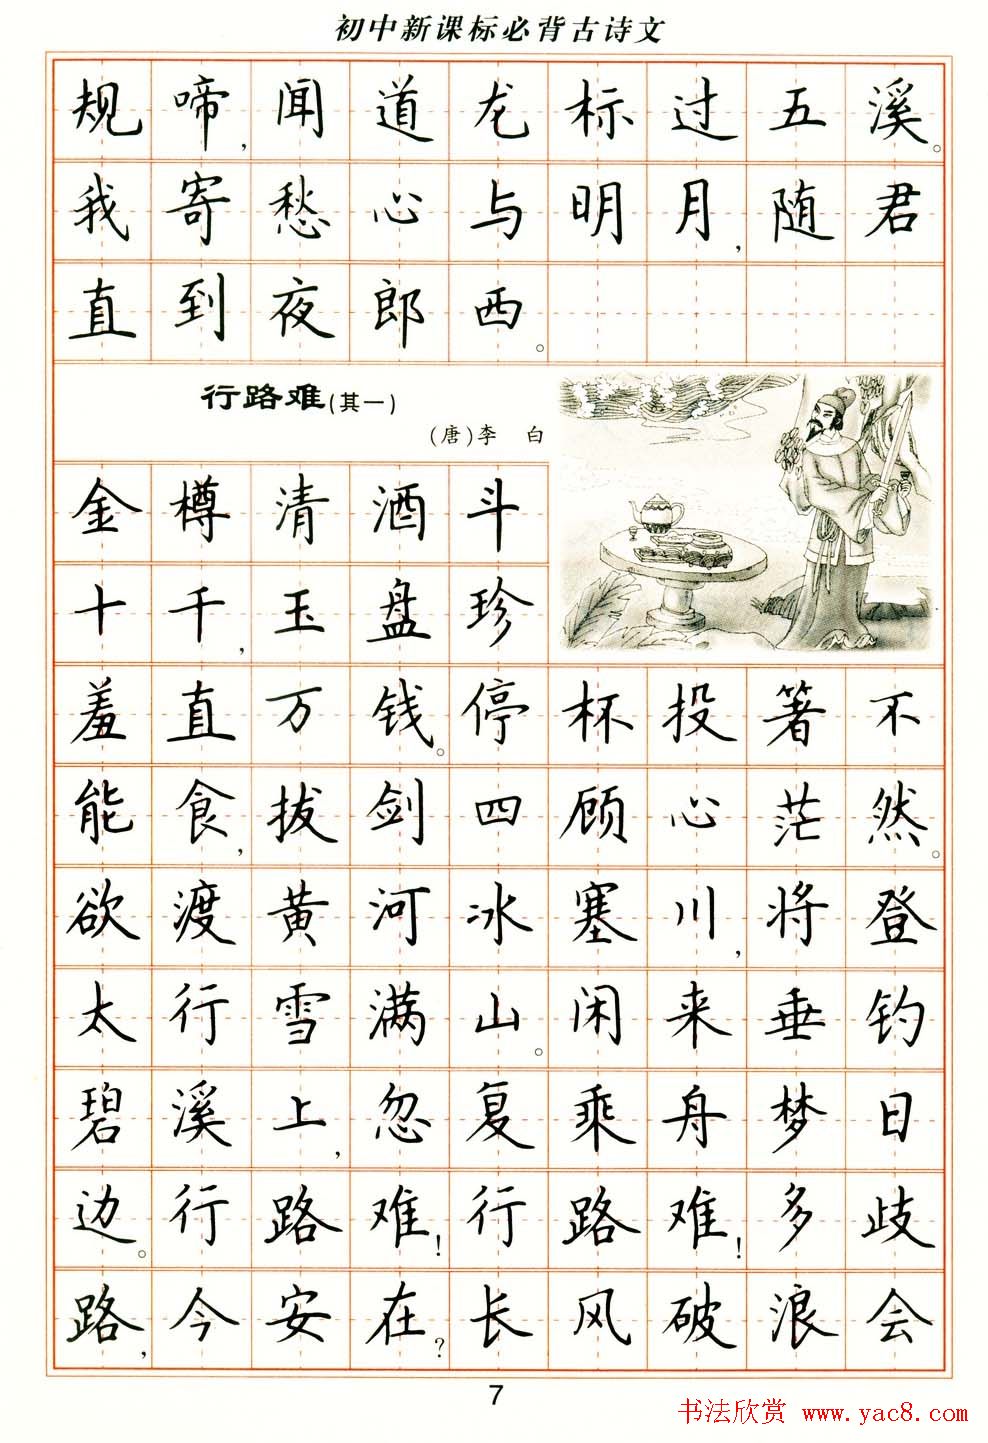 初中新课标必背古诗文
规啼,闻道龙标过五溪。
我寄愁心与明月,随君
直到夜郎西。
行路难(其一)
(唐)李 白
金樽清酒斗
十千,玉盘珍
羞直万钱。停杯投箸不
能食,拔剑四顾心茫然。
欲渡黄河冰塞川,将登
太行雪满山。闲来垂钓
碧溪上,忽复乘舟梦日
边。行路难!行路难!多歧
路,今安在?长风破浪会
7
书法欣赏 www.yac8.com